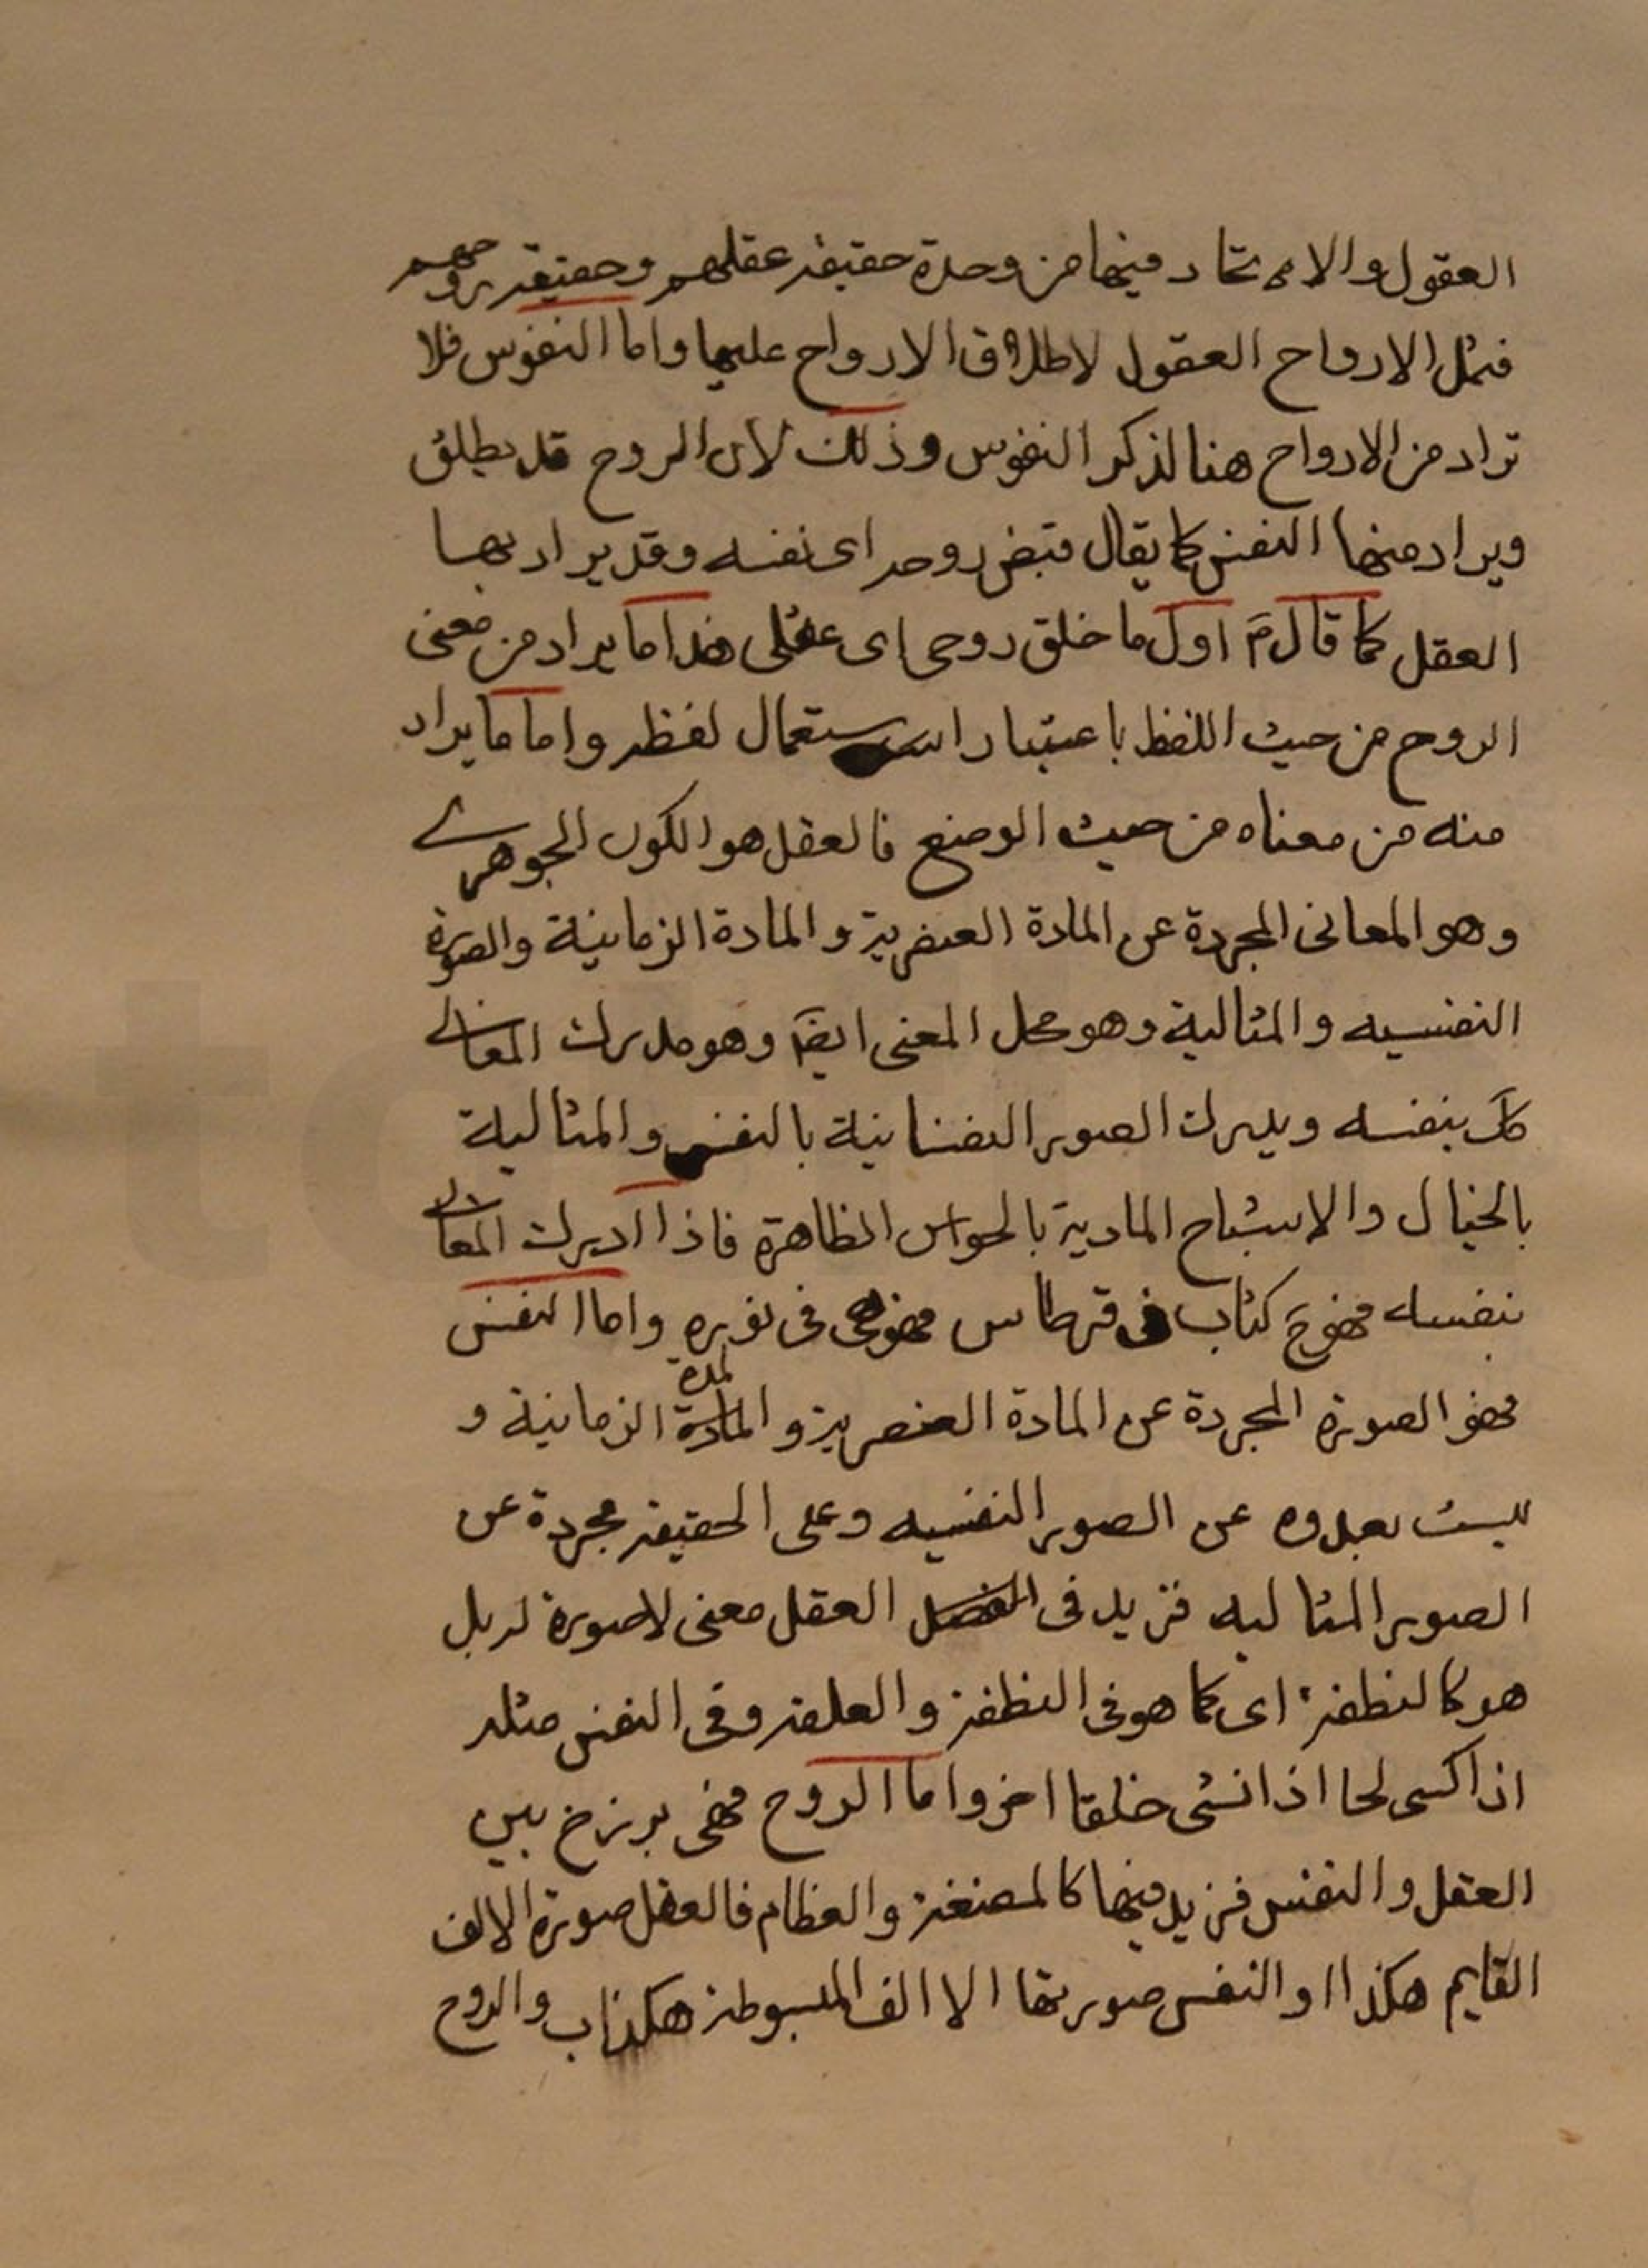 العقول والاتحاد فيها من وحدة حقيقة عقلهم وحقيقة روحهم
فمثل الارواح العقول لاطلاق الارواح عليها واما النفوس فلا
تراد من الارواح هنا لذكر النفوس وذلك لان الروح قد يطلق
ويراد منها النفس كما يقال قبض روحه اى نفسه وقد يراد بها
العقل كما قال ۴ اول ما خلق روحى اى عقلى هذا ما يراد من معنى
الروح من حيث اللفظ باعتبار استعمال لفظه واما ما يراد
منه من معناه من حيث الوضع فالعقل هو الكون الجوهرى
وهو المعانى المجردة عن المادة العنصرية والمادة الزمانية والصورة
النفسيه والمثالية وهو محل المعنى ايضا وهو مدرك المعانى
كك بنفسه ويدرك الصور النفسانية بالنفس والمثالية
بالخيال والاشباح المادية بالحواس الظاهرة فاذا ادرك المعانى
بنفسه فهو ح كتاب فى قرطاس فهو هى فى نوره واما النفس
فهو الصورة المجردة عن المادة العنصرية والمادة المدة الزمانية و
ليست مجدوه عن الصور النفسيه وعلى الحقيقة مجردة عن
الصور المثاليه فزيد فى العقل معنى لا صورة له بل
هو كالنطفة اى كما هو فى النطفة والعلقة وفى النفس مثله
اذا كسى لحما اذا نشئ خلقا اخر واما الروح فهى برزخ بين
العقل والنفس فزيد فيها كالمضغة والعظام فالعقل صورة الالف
القايم هكذا ا والنفس صورتها الا الف المبسوطة هكذا ب والروح